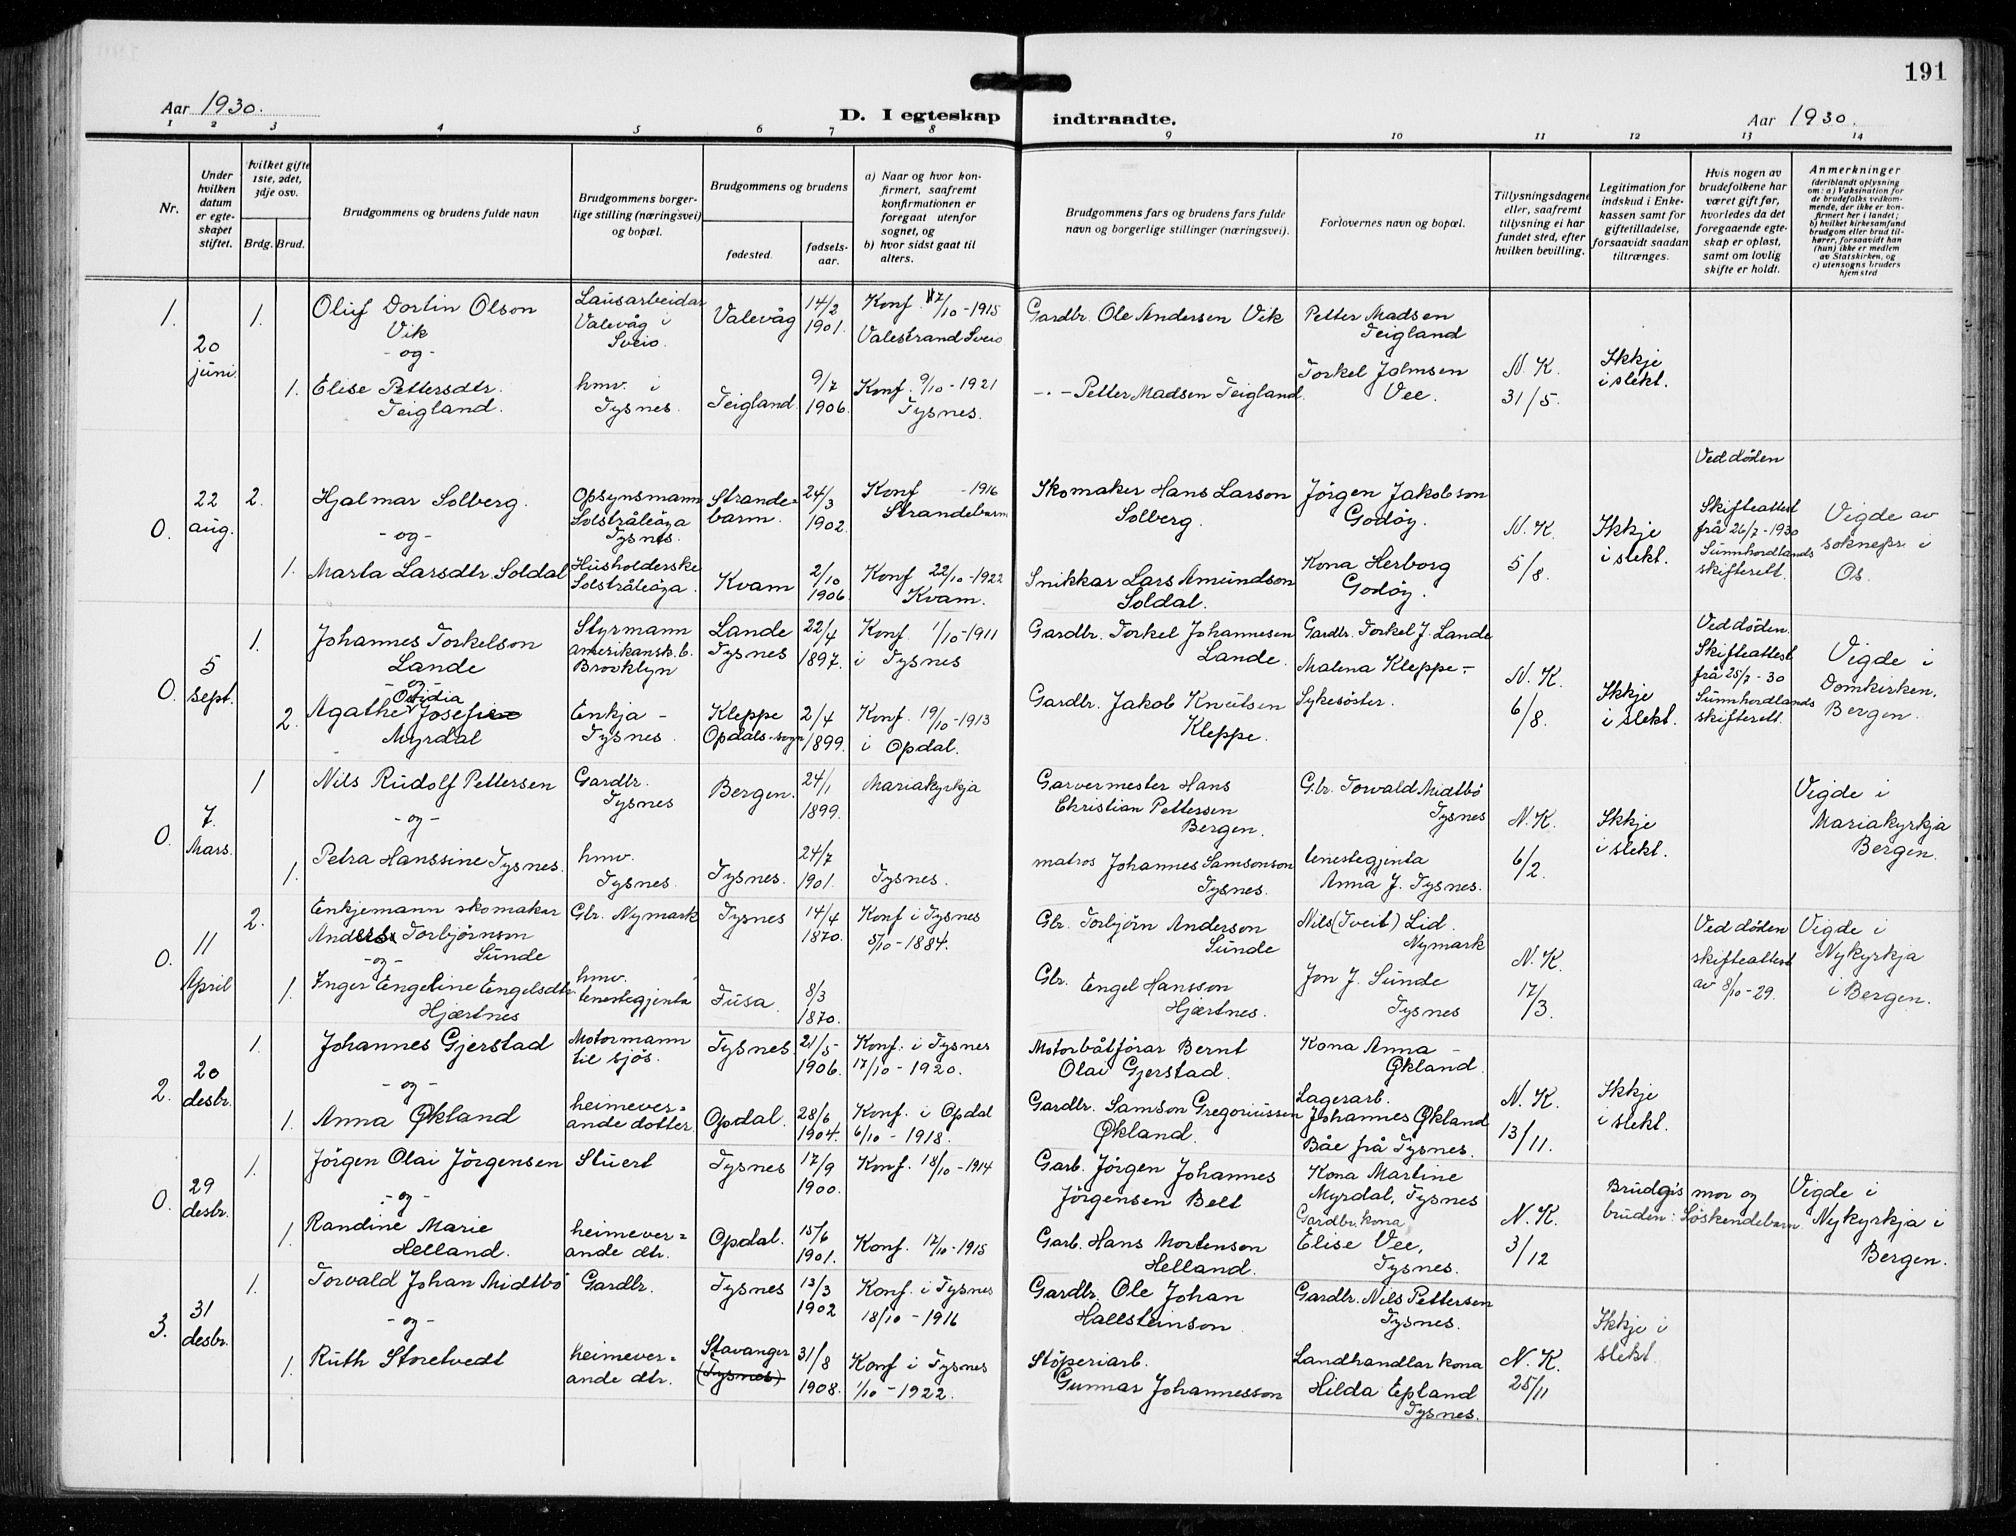 191
Aar 1930.
D. I egteskap indtraadte.
Aar 1930.
1 2 3 4 5 6 7 8 9 10 11 12 13 14
Nr.
Under hvilken datum er egteskapet stiftet.
hvilket gifte 1ste, 2det, 3dje osv.
Brdg. Brud.
Brudgommens og brudens fulde navn
Brudgommens borgerlige stilling (næringsvei) og bopæl.
Brudgommens og brudens
fødested.
fødselsaar.
a) Naar og hvor konfirmert, saafremt konfirmationen er foregaat utenfor sognet, og
b) hvor sidst gaat til alters.
Brudgommens fars og brudens fars fulde navn og borgerlige stillinger (næringsvei).
Forlovernes navn og bopæl.
Tillysningsdagene eller, saafremt tillysning ei har fundet sted, efter hvilken bevilling.
Legitimation for indskud i Enkekassen samt for giftetilladelse, forsaavidt saadan tiltrænges.
Hvis nogen av brudefolkene har været gift før, hvorledes da det foregaaende egteskap er opløst, samt om lovlig skifte er holdt.
Anmerkninger
(deriblandt oplysning om: a) Vaksination for de brudefolks vedkommende, der ikke er konfirmert her i landet; b) hvilket kirkesamfund brudgom eller brud tilhører, forsaavidt han (hun) ikke er medlem av Statskirken, og c) utensogns bruders hjemsted
1.
20 juni.
1.
Oluf Dortin Olson Vik
Lausarbeidar Valevåg i Sveio.
Valevåg
14/2 1901.
Konf. 17/10-1915 Valestrand Sveio
Gardbr. Ole Andersen Vik
Petter Madsen Teigland
-og-
1.
Elise Pettersdtr. Teigland.
hmv. i Tysnes.
Teigland.
9/7 1906.
Konf. 9/10-1921 Tysnes.
-.- Petter Madsen Teigland.
Torkel Jalmsen Vee.
N. K. 31/5.
Ikkje i slekt.
0.
22 aug.
2.
Hjalmar Solberg.
Opsynsmann Solstråleöya Tysnes.
Strandebarm.
24/3 1902.
Konf -1916 Strandebarm
Skomaker Hans Larson Solberg.
Jörgen Jakobson Godöy.
-og-
1.
Marta Larsdtr. Soldal
Husholderske Solstråleöya.
Kvam
2/10 1906.
Konf 22/10-1922 Kvam.
Snikkar Lars Amundson Soldal.
Kona Herborg Godöy.
N. K. 5/8.
Ikkje i slekt.
Ved döden
Skifteattest frå 26/7-1930 Sunnhordlands skifterett.
Vigde av soknepr. i Os.
0.
5 sept.
1.
Johannes Torkelson Lande
Styrmann amerikansk b. Brooklyn
Lande Tysnes
22/4 1897.
Konf. 1/10-1911 i Tysnes
Gardbr. Torkel Johannesen Lande.
Gardbr. Torkel J. Lande
-og-
2.
Agathe Ovidia Josefine Myrdal
Enkja - Tysnes.
Kleppe Opdals-sogn
2/4 1899.
Konf. 19/10-1913 i Opdal.
Gardbr. Jakob Knutsen Kleppe.
Malena Kleppe - Sykesöster.
N. K. 6/8.
Ikkje i slekt.
Ved döden. Skifteattest frå 25/7-30 Sunnhordlands skifterett.
Vigde i Domkirken. Bergen.
0.
7. Mars.
1
Nils Rudolf Pettersen
Gardbr. Tysnes
Bergen.
24/1 1899.
Mariakyrkja
Garvermester Hans Christian Pettersen Bergen.
Gbr. Torvald Midtbö Tysnes
-og-
1.
Petra Hanssine Tysnes.
hmv. Tysnes.
Tysnes.
24/7 1901.
Tysnes.
matros Johannes Samsonson Tysnes.
tenestegjenta Anna J. Tysnes.
N. K. 6/2
Ikkje i slekt.
Vigde i Mariakyrkja Bergen.
0.
11 April
2.
Enkjemann skomaker Anders Torbjörnson Sunde
Gbr. Nymark
Tysnes
14/4 1870.
Konf i Tysnes 5/10-1884.
Gbr. Torbjörn Anderson Sunde
Nils (Tveit) Lid. Nymark
-og-
1.
Inger Engeline Engelsdtr Hjærtnes
hmv. tenestegjenta
Fusa.
8/3 1870.
Gbr. Engel Hansson Hjærtnes.
Jon J. Sunde Tysnes
N. K. 17/3.
Ved döden skifteattest av 8/10-29.
Vigde i Nykyrkja i Bergen.
2.
20 desbr.
1.
Johannes Gjerstad
Motormann til sjös.
Tysnes.
21/5 1906.
Konf. i Tysnes 17/10-1920.
Motorbåtförar Bernt Olai Gjerstad.
Kona Anna Økland.
-og-
1.
Anna Økland
heimeverande dotter
Opdal.
28/6 1904.
Konf. i Opdal 6/10-1918.
Gardbr. Samson Gregoriussen Økland.
Lagerarb. Johannes Økland Båe frå Tysnes.
N. K. 13/11.
Ikkje i slekt.
0.
29 desbr.
1.
Jörgen Olai Jörgensen
Stuert
Tysnes
17/9 1900.
Konf. 18/10-1914
Garb. Jörgen Johannes Jörgensen Belt
Kona Martine Myrdal, Tysnes
-og-
1.
Randine Marie Helland.
heimeverande dtr.
Opdal.
15/6 1901.
Konf. 17/10-1915
Garb. Hans Mortenson Helland.
Gardbr. kona Elise Vee, Tysnes.
N. K. 3/12
Brudg's mor og bruden: Söskendebarn.
Vigde i Nykyrkja i Bergen.
3.
31 desbr.
1.
Torvald Johan Midtbö
Gardbr.
Tysnes
13/3 1902
Konf. i Tysnes 18/10-1916
Gardbr. Ole Johan Hallsteinson.
Gardbr. Nils Pettersen Tysnes.
-og-
1.
Ruth Storetvedt
heimeverande dtr.
Stavanger (Tysnes)
31/8 1908.
Konf i Tysnes 1/10-1922.
Stöperiarb. Gunnar Johannesson
Landhandlar kona Hilda Epland Tysnes.
N. K. 25/11
Ikkje i slekt.